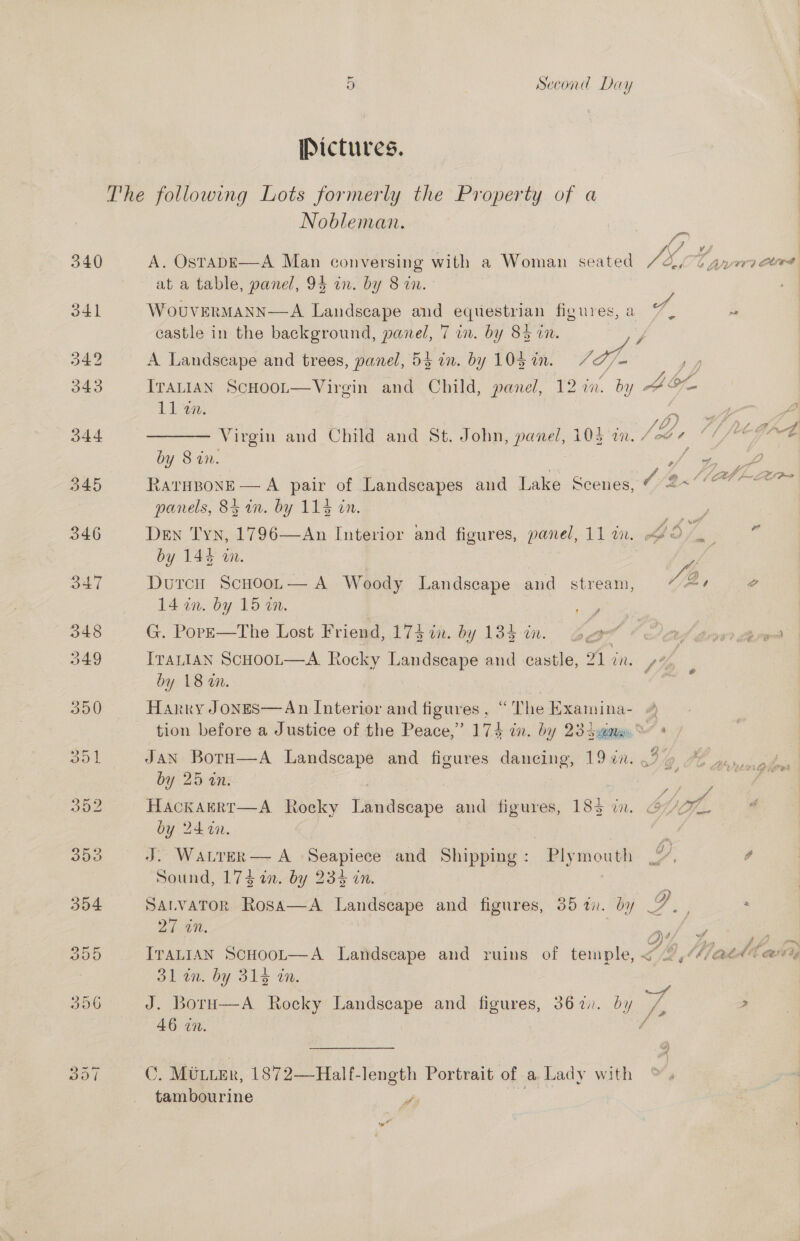 5 Second Day
Pictures.
The following Lots formerly the Property of a
Nobleman.
340 A. OSTADE—A Man conversing with a Woman seated
at a table, panel, 9½ in. by 8 in.
341 WOUVERMANN—A Landscape and equestrian figures, a 7.
castle in the background, panel, 7 in. by 8½ in.
342 A Landscape and trees, panel, 5½ in. by 10½ in.
343 ITALIAN SCHOOL—Virgin and Child, panel, 12 in. by
11 in.
344 ——— Virgin and Child and St. John, panel, 10½ in.
by 8 in.
345 RATHBONE — A pair of Landscapes and Lake Scenes,
panels, 8½ in. by 11½ in.
346 DEN TYN, 1796—An Interior and figures, panel, 11 in.
by 14½ in.
347 DUTCH SCHOOL — A Woody Landscape and stream,
14 in. by 15 in.
348 G. POPE—The Lost Friend, 17½ in. by 13½ in.
349 ITALIAN SCHOOL—A Rocky Landscape and castle, 21 in.
by 18 in.
350 HARRY JONES—An Interior and figures, “The Examina-
tion before a Justice of the Peace,” 17½ in. by 23½
351 JAN BOTH—A Landscape and figures dancing, 19 in.
by 25 in.
352 HACKAERT—A Rocky Landscape and figures, 18½ in.
by 24 in.
353 J. WALTER — A Seapiece and Shipping: Plymouth
Sound, 17½ in. by 23½ in.
354 SALVATOR ROSA—A Landscape and figures, 35 in. by
27 in.
355 ITALIAN SCHOOL—A Landscape and ruins of temple,
31 in. by 31½ in.
356 J. BOTH—A Rocky Landscape and figures, 36 in. by 7.
46 in.
357 C. MÜLLER, 1872—Half-length Portrait of a Lady with
tambourine